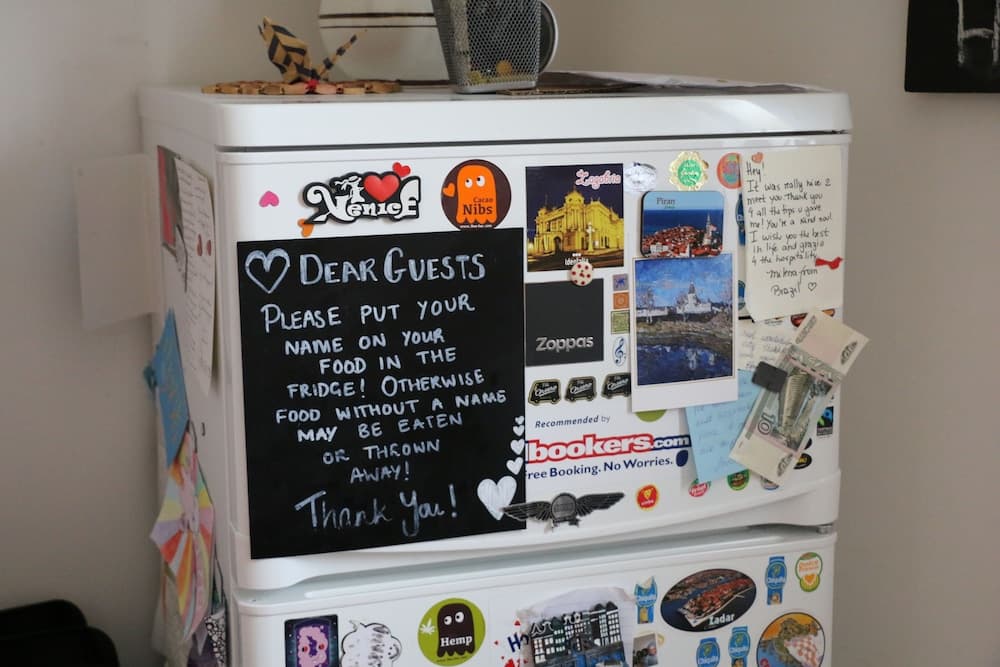 I
Venice
Cacao
Nibs
Zagabria
Piran
DEAR GUESTS
PLEASE PUT YOUR
NAME ON YOUR
FOOD IN THE
FRIDGE! OTHERWISE
FOOD WITHOUT A NAME
MAY BE EATEN
OR THROWN
AWAY!
Thank You!
Zoppas
Recommended by
bookers.com
ree Booking. No Worries.
Hey!
It was really nice 2
meet you. Thank you
4 all the tips u gave
me! You're a kind soul
I wish you the best
in life and grazie
4 the hospitality
-milena from
Brazil
10
Chiquita
Zadar
Hemp
Chiquita
Chiquita